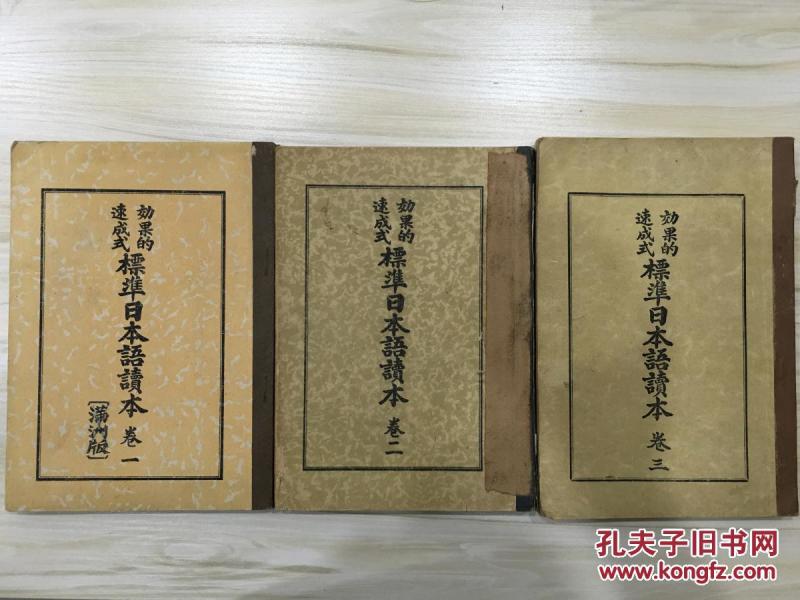 効果的
速成式
標準日本語讀本 卷一
[滿洲版]
効果的
速成式
標準日本語讀本 卷二
効果的
速成式
標準日本語讀本 卷三
孔夫子旧书网
www.kongfz.com